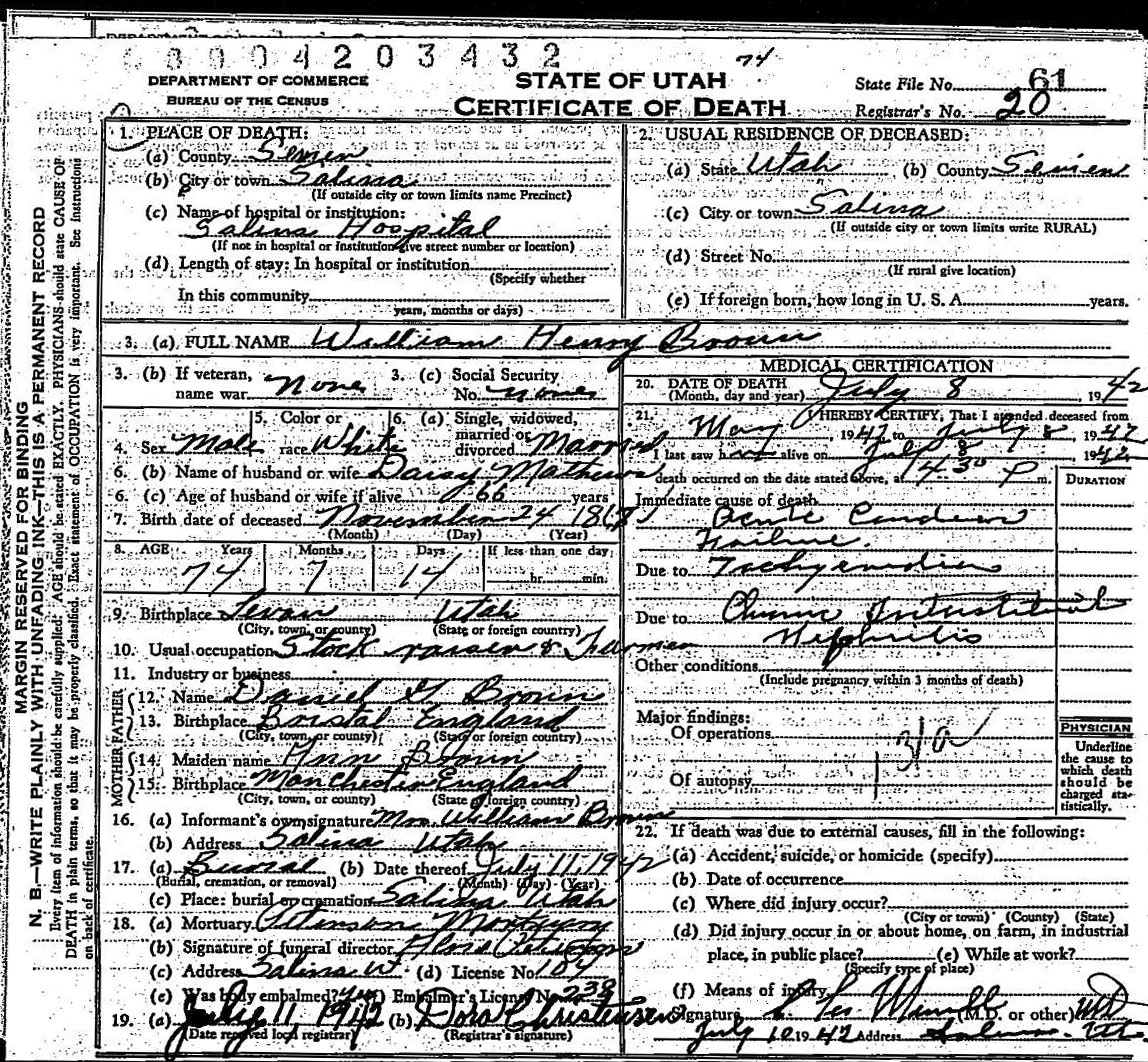 6 8 0 0 4 2 0 3 4 3 2
74
DEPARTMENT OF COMMERCE
BUREAU OF THE CENSUS
STATE OF UTAH
CERTIFICATE OF DEATH
State File No. 61
Registrar's No. 20
MARGIN RESERVED FOR BINDING
N. B.—WRITE PLAINLY WITH UNFADING INK—THIS IS A PERMANENT RECORD
Every item of information should be carefully supplied. AGE should be stated EXACTLY. PHYSICIANS should state CAUSE OF
DEATH in plain terms, so that it may be properly classified. Exact statement of OCCUPATION is very important. See Instructions
on back of certificate.
1. PLACE OF DEATH:
(a) County Sevier
(b) City or town Salina
(If outside city or town limits name Precinct)
(c) Name of hospital or institution:
Salina Hospital
(If not in hospital or institution give street number or location)
(d) Length of stay: In hospital or institution
(Specify whether
In this community
years, months or days)
2. USUAL RESIDENCE OF DECEASED:
(a) State Utah (b) County Sevier
(c) City or town Salina
(If outside city or town limits write RURAL)
(d) Street No.
(If rural give location)
(e) If foreign born, how long in U. S. A. years.
3. (a) FULL NAME William Henry Brown
3. (b) If veteran, name war None
3. (c) Social Security No. none
4. Sex Male
5. Color or race White
6. (a) Single, widowed, married or divorced Married
6. (b) Name of husband or wife Daisy Mathews
6. (c) Age of husband or wife if alive 66 years
7. Birth date of deceased November 24 1867
(Month) (Day) (Year)
8. AGE Years Months Days If less than one day
74 7 14 hr. min.
9. Birthplace Levan Utah
(City, town, or county) (State or foreign country)
10. Usual occupation Stock raiser & Farmer
11. Industry or business
FATHER
12. Name Daniel G Brown
13. Birthplace Bristol England
(City, town, or county) (State or foreign country)
MOTHER
14. Maiden name Ann
15. Birthplace Manchester England
(City, town, or county) (State or foreign country)
16. (a) Informant's own signature Mrs. William Brown
(b) Address Salina Utah
17. (a) Burial (b) Date thereof July 11, 1942
(Burial, cremation, or removal) (Month) (Day) (Year)
(c) Place: burial or cremation Salina Utah
18. (a) Mortuary
(b) Signature of funeral director
(c) Address Salina (d) License No. 104
(e) Was body embalmed? yes (f) Embalmer's License No. 238
19. (a) July 11 1942 (b) Dora Christensen
(Date received local registrar) (Registrar's signature)
MEDICAL CERTIFICATION
20. DATE OF DEATH July 8, 1942
(Month, day and year)
21. I HEREBY CERTIFY, That I attended deceased from
May, 1942 to July 8, 1942
I last saw him alive on July 8, 1942
death occurred on the date stated above, at 4:30 P m.
DURATION
Immediate cause of death
Acute Cardiac
Failure.
Due to Tachycardia
Due to Chronic Interstitial
Nephritis
Other conditions
(Include pregnancy within 3 months of death)
Major findings:
Of operations
131a
Of autopsy
PHYSICIAN
Underline
the cause to
which death
should be
charged sta-
tistically.
22. If death was due to external causes, fill in the following:
(a) Accident, suicide, or homicide (specify)
(b) Date of occurrence
(c) Where did injury occur?
(City or town) (County) (State)
(d) Did injury occur in or about home, on farm, in industrial
place, in public place? (e) While at work?
(Specify type of place)
(f) Means of injury
Signature (M.D. or other) MD
July 10 1942 Address Salina